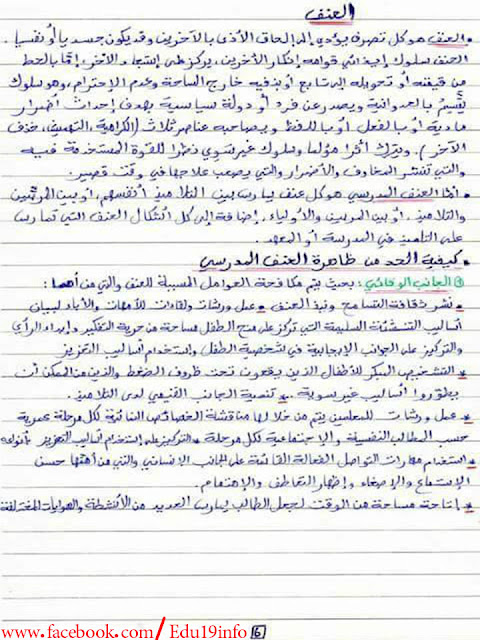 العنف
• العنف هو كل تصرف يؤدي إلى إلحاق الأذى بالآخرين وقد يكون جسديا أو نفسيا.
العنف سلوك إيذائي قوامه إنكار الآخرين، يركز على استبعاد الآخر، إما بالحط
من قيمته أو تحويله إلى تابع أو بنفيه خارج الساحة وعدم الإحترام، وهو سلوك
يتسم بالعدوانية ويصدر عن فرد أو دولة سياسية بهدف إحداث أضرار
مادية أو بالفعل أو باللفظ ويصاحبه عناصر ثلاث (الكراهية، التهميش، حذف
الآخر). ويترك أثرا مؤلما وسلوك غير سوي نظرا للقوة المستخدمة فيه
والتي تنشر المخاوف والأضرار والتي يصعب علاجها في وقت قصير.
• أما العنف المدرسي هو كل عنف يمارس بين التلاميذ أنفسهم، أو بين المدرسين
والتلاميذ، أو بين المدرسين والأولياء، إضافة إلى كل أشكال العنف التي تمارس
على التلميذ في المدرسة أو المعهد.
• كيفية الحد من ظاهرة العنف المدرسي
الجانب الوقائي: بحيث يتم مكافحة العوامل المسببة للعنف والتي من أهمها:
• نشر ثقافة التسامح ونبذ العنف • عمل ورشات ولقاءات للأمهات والآباء لبيان
أساليب التنشئة السليمة التي تركز على منح الطفل مساحة من حرية التفكير وإبداء الرأي
والتركيز على الجوانب الإيجابية في شخصية الطفل واستخدام أساليب التعزيز
* التشخيص المبكر للأطفال الذين يقعون تحت ظروف الضغط والذين من الممكن أن
يطوروا أساليب غير سوية. • تنمية الجانب القيمي لدى التلاميذ.
* عمل ورشات للمعلمين يتم من خلالها مناقشة الخصائص النمائية لكل مرحلة عمرية
حسب المطالب النفسية والإجتماعية لكل مرحلة * التركيز على استخدام أساليب التعزيز بأنواعه
* استخدام مهارات التواصل الفعالة القائمة على الجانب الإنساني والتي من أهمها حسن
الإستماع والإصغاء وإظهار التعاطف والإهتمام.
* إتاحة مساحة من الوقت لجعل الطالب يمارس العديد من الأنشطة والهوايات المختلفة
6
www.facebook.com/Edu19info